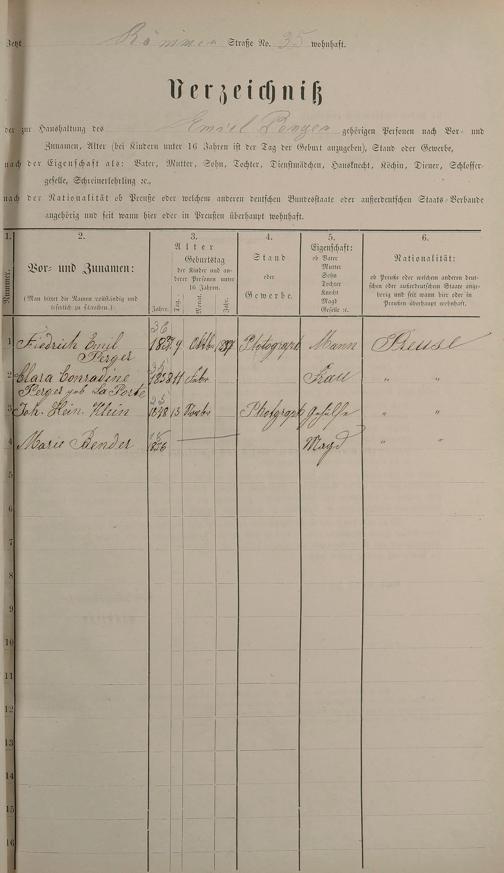 Jetzt Römmer Straße No. 35 wohnhaft.
Verzeichniß
der zur Haushaltung des Emiel Perger gehörigen Personen nach Vor- und
Zunamen, Alter (bei Kindern unter 16 Jahren ist der Tag der Geburt anzugeben), Stand oder Gewerbe,
nach der Eigenschaft als: Vater, Mutter, Sohn, Tochter, Dienstmädchen, Hausknecht, Köchin, Diener, Schlosser-
geselle, Schreinerlehrling ꝛc.,
nach der Nationalität ob Preuße oder welchem anderen deutschen Bundesstaate oder außerdeutschen Staats-Verbande
angehörig und seit wann hier oder in Preußen überhaupt wohnhaft.
1. 2. 3. 4. 5. 6.
Nummer.
Vor- und Zunamen:
(Man bittet die Namen vollständig und
leserlich zu schreiben.)
Alter
Geburtstag
der Kinder und an-
derer Personen unter
16 Jahren.
Jahre. Tag. Monat. Jahr.
Stand
oder
Gewerbe.
Eigenschaft:
ob Vater
Mutter
Sohn
Tochter
Knecht
Magd
Geselle ꝛc.
Nationalität:
ob Preuße oder welchen anderen deut-
schen oder außerdeutschen Staate ange-
hörig und seit wann hier oder in
Preußen überhaupt wohnhaft.
36
1 Friedrich Emil 9 Photograph Mann Preuse
Perger
2 Clara Conradine 1852 11 Frau " "
Perger geb La Porte
3 Joh. Hein. Klein 1848 13 Photograph Gehülfe " "
4 Marie Bender 1856 — Magd " "
5
6
7
8
9
10
11
12
13
14
15
16